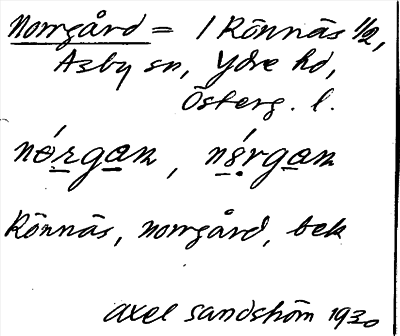 Norrgård = / Rönnäs 1/2,
Asby sn, Ydre hd,
Österg. l.
Rönnäs, norrgård, bek
Axel Sandström 1930